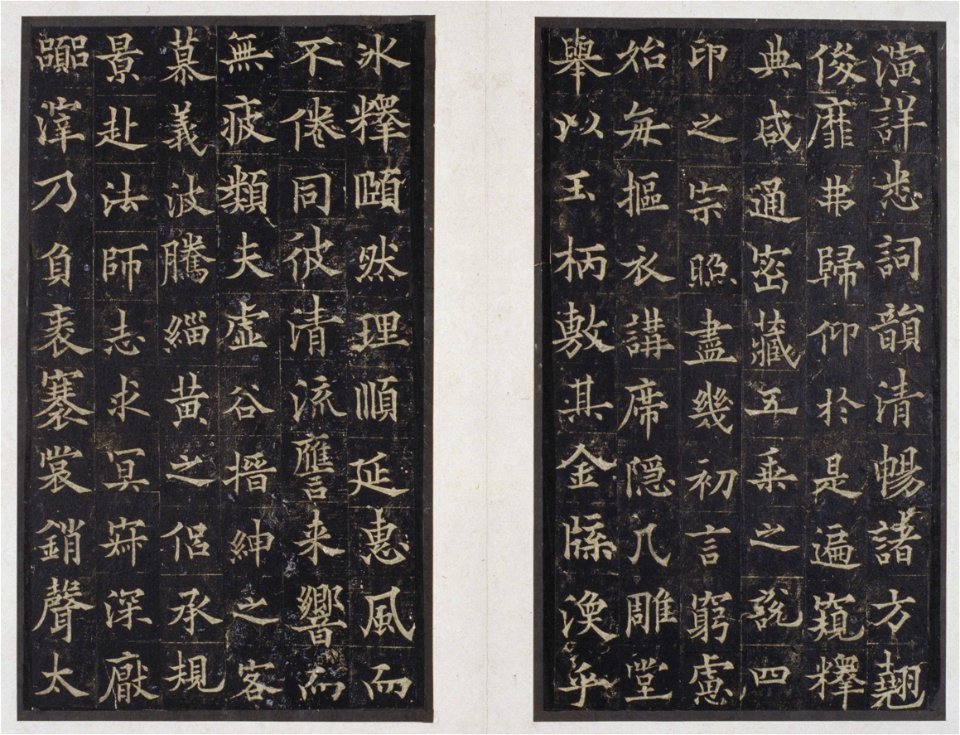 演詳悉詞韻清暢諸方翹
俊靡弗歸仰於是遍窺釋
典咸通密藏五乘之說四
印之宗照盡幾初言窮慮
始每摳衣講席隱几雕堂
舉以玉柄敷其金牒渙乎
冰釋頤然理順延惠風而
不倦同彼清流譍来響而
無疲類夫虛谷搢紳之客
慕義波騰緇黃之侶承規
景赴法師志求冥寂深厭
囂滓乃負袠褰裳銷聲太